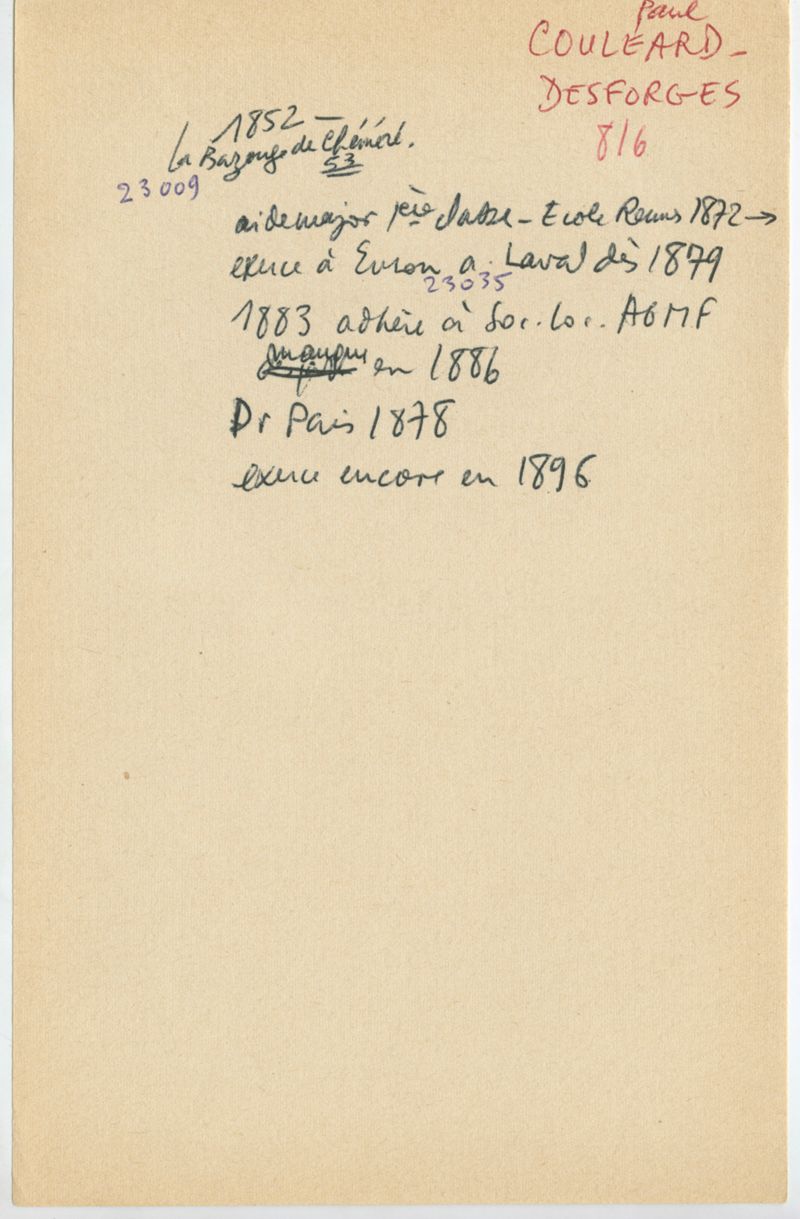 Paul
COULEARD-
DESFORGES
8/6
1852 —
La Bazouge de Chéméré.
53
23009
aide major 1ère classe - Ecole Rennes 1872 →
exerce à Evron, a Laval dès 1879
23035
1883 adhère à Soc. loc. AGMF
manque en 1886
Dr Paris 1878
exerce encore en 1896